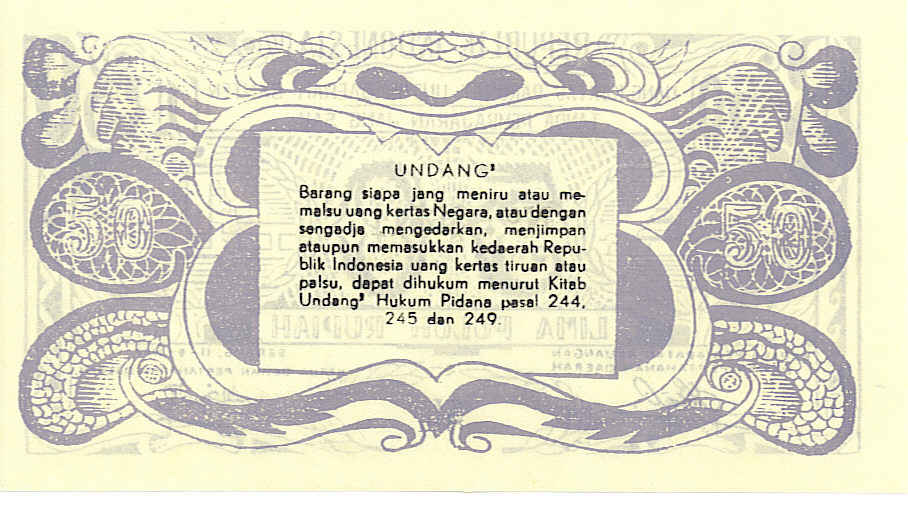 UNDANG²
Barang siapa jang meniru atau me-
malsu uang kertas Negara, atau dengan
sengadja mengedarkan, menjimpan
ataupun memasukkan kedaerah Repu-
blik Indonesia uang kertas tiruan atau
palsu, dapat dihukum menurut Kitab
Undang² Hukum Pidana pasal 244,
245 dan 249.
50
50
LIMA PULUH RUPIAH